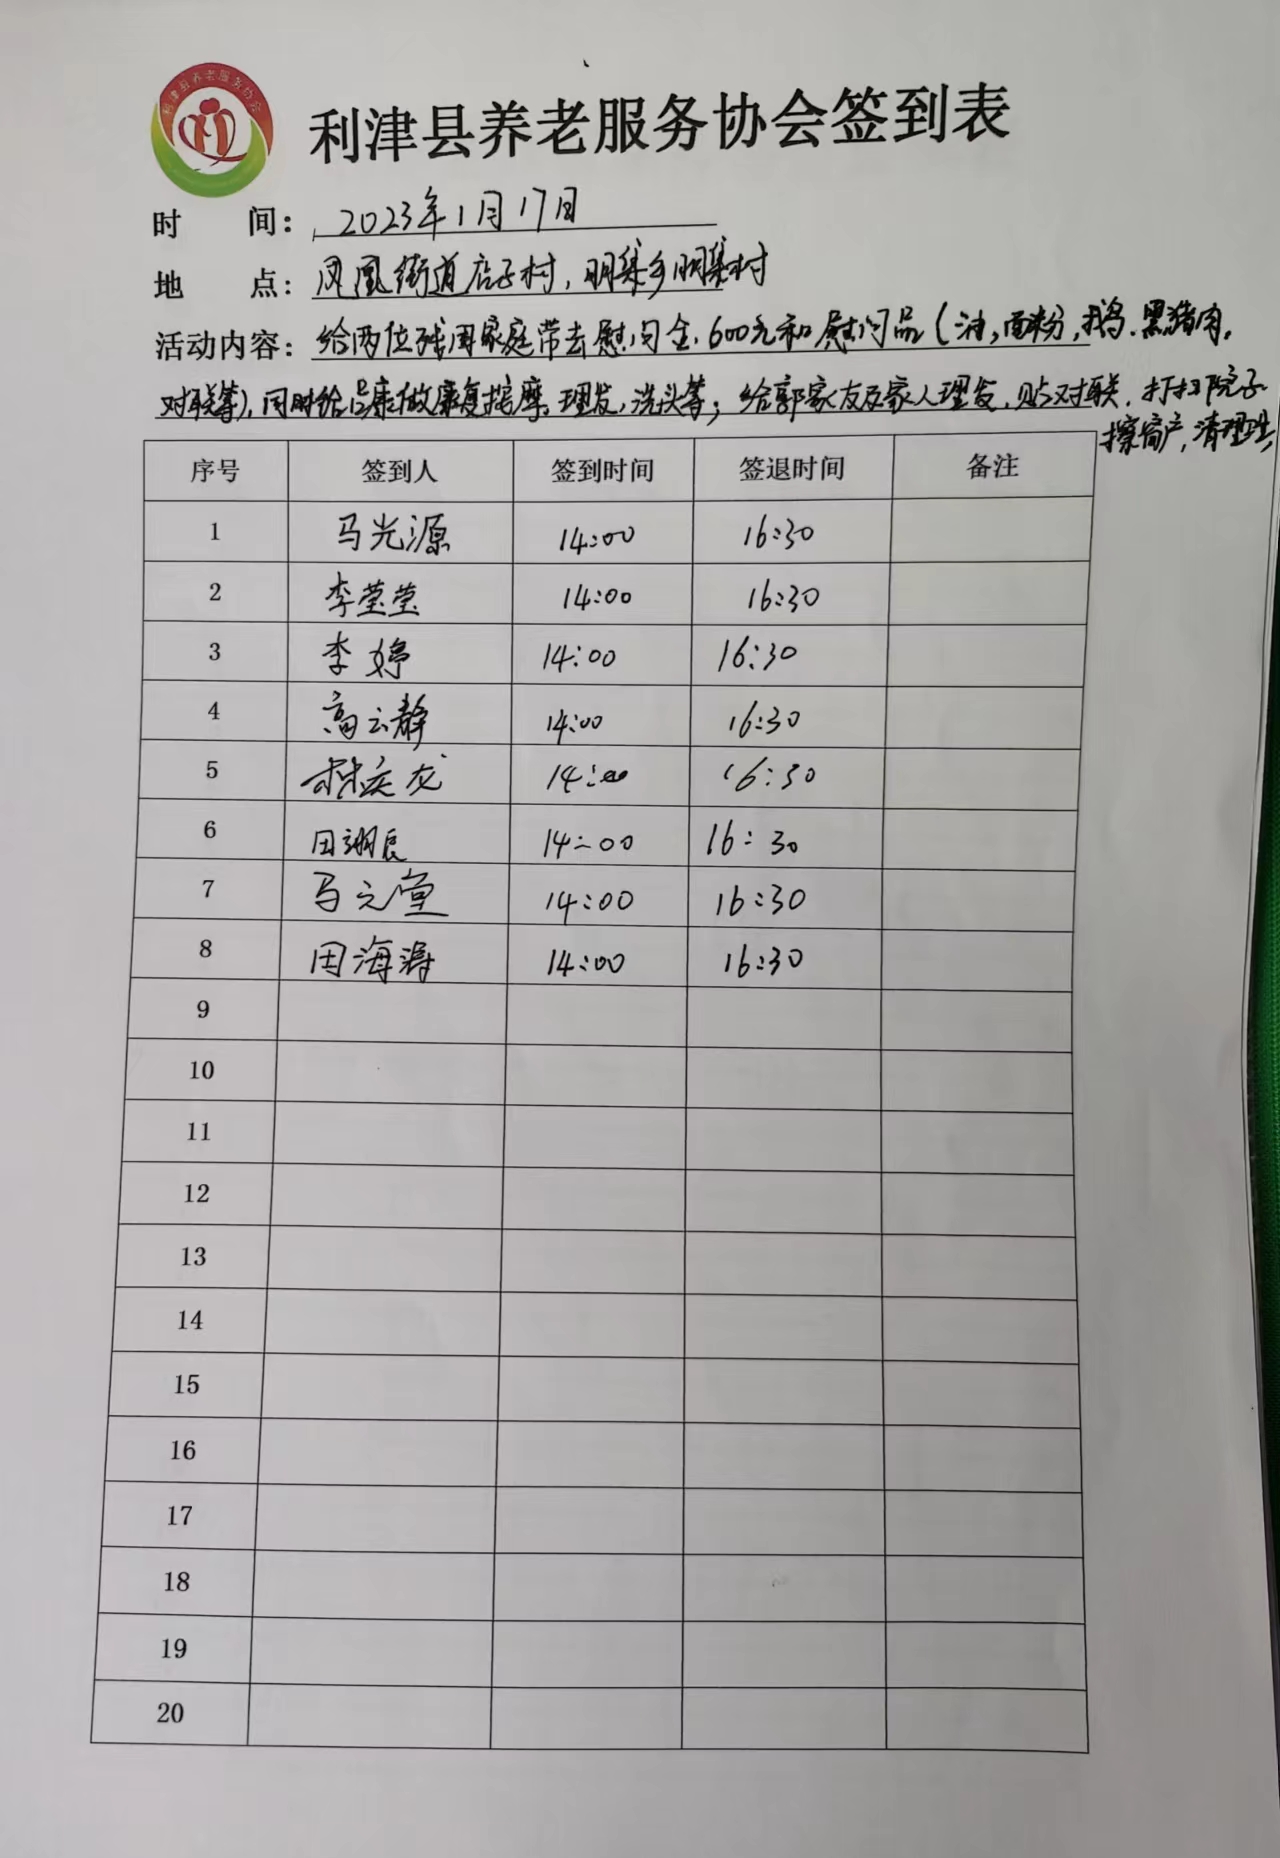 利津县养老服务协会
利津县养老服务协会签到表
时 间：2023年1月17日
地 点：凤凰街道店子村，明集乡明集村
活动内容：给两位残困家庭带去慰问金600元和慰问品（油，面粉，鹅，黑猪肉，
对联等），同时给吕康做康复按摩，理发，洗头等；给郭家友及家人理发，贴对联，打扫院子
擦窗户，清理
序号 签到人 签到时间 签退时间 备注
1 马光源 14:00 16:30
2 李莹莹 14:00 16:30
3 李婷 14:00 16:30
4 高云静 14:00 16:30
5 14:00 16:30
6 田翊辰 14:00 16:30
7 马元堂 14:00 16:30
8 田海涛 14:00 16:30
9
10
11
12
13
14
15
16
17
18
19
20